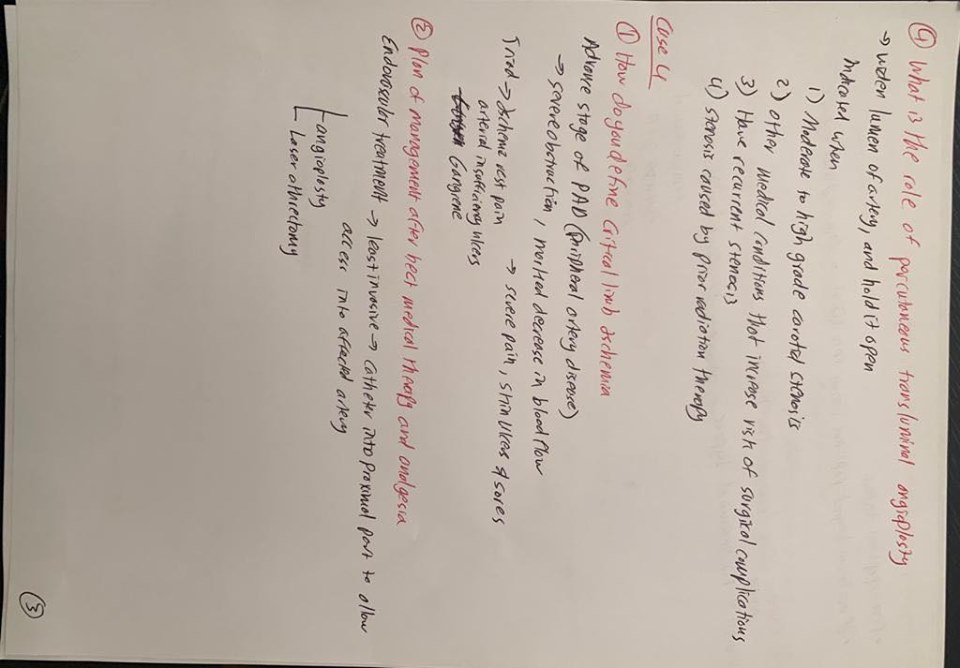 ④ What is the role of percutaneous transluminal angioplasty
→ widen lumen of artery, and hold it open
Indicated when
1) Moderate to high grade carotid stenosis
2) other medical conditions that increase risk of surgical complications
3) Have recurrent stenosis
4) stenosis caused by prior radiation therapy
Case 4
① How do you define Critical limb ischemia
Advance stage of PAD (peripheral artery disease)
→ severe obstruction, marked decrease in blood flow
Triad → Ischemic rest pain → severe pain, skin ulcers & sores
arterial insufficiency ulcers
Gangrene
② Plan of management after best medical therapy and analgesia
Endovascular treatment → least invasive → catheter into proximal part to allow
access into affected artery
angioplasty
Laser atherectomy
③